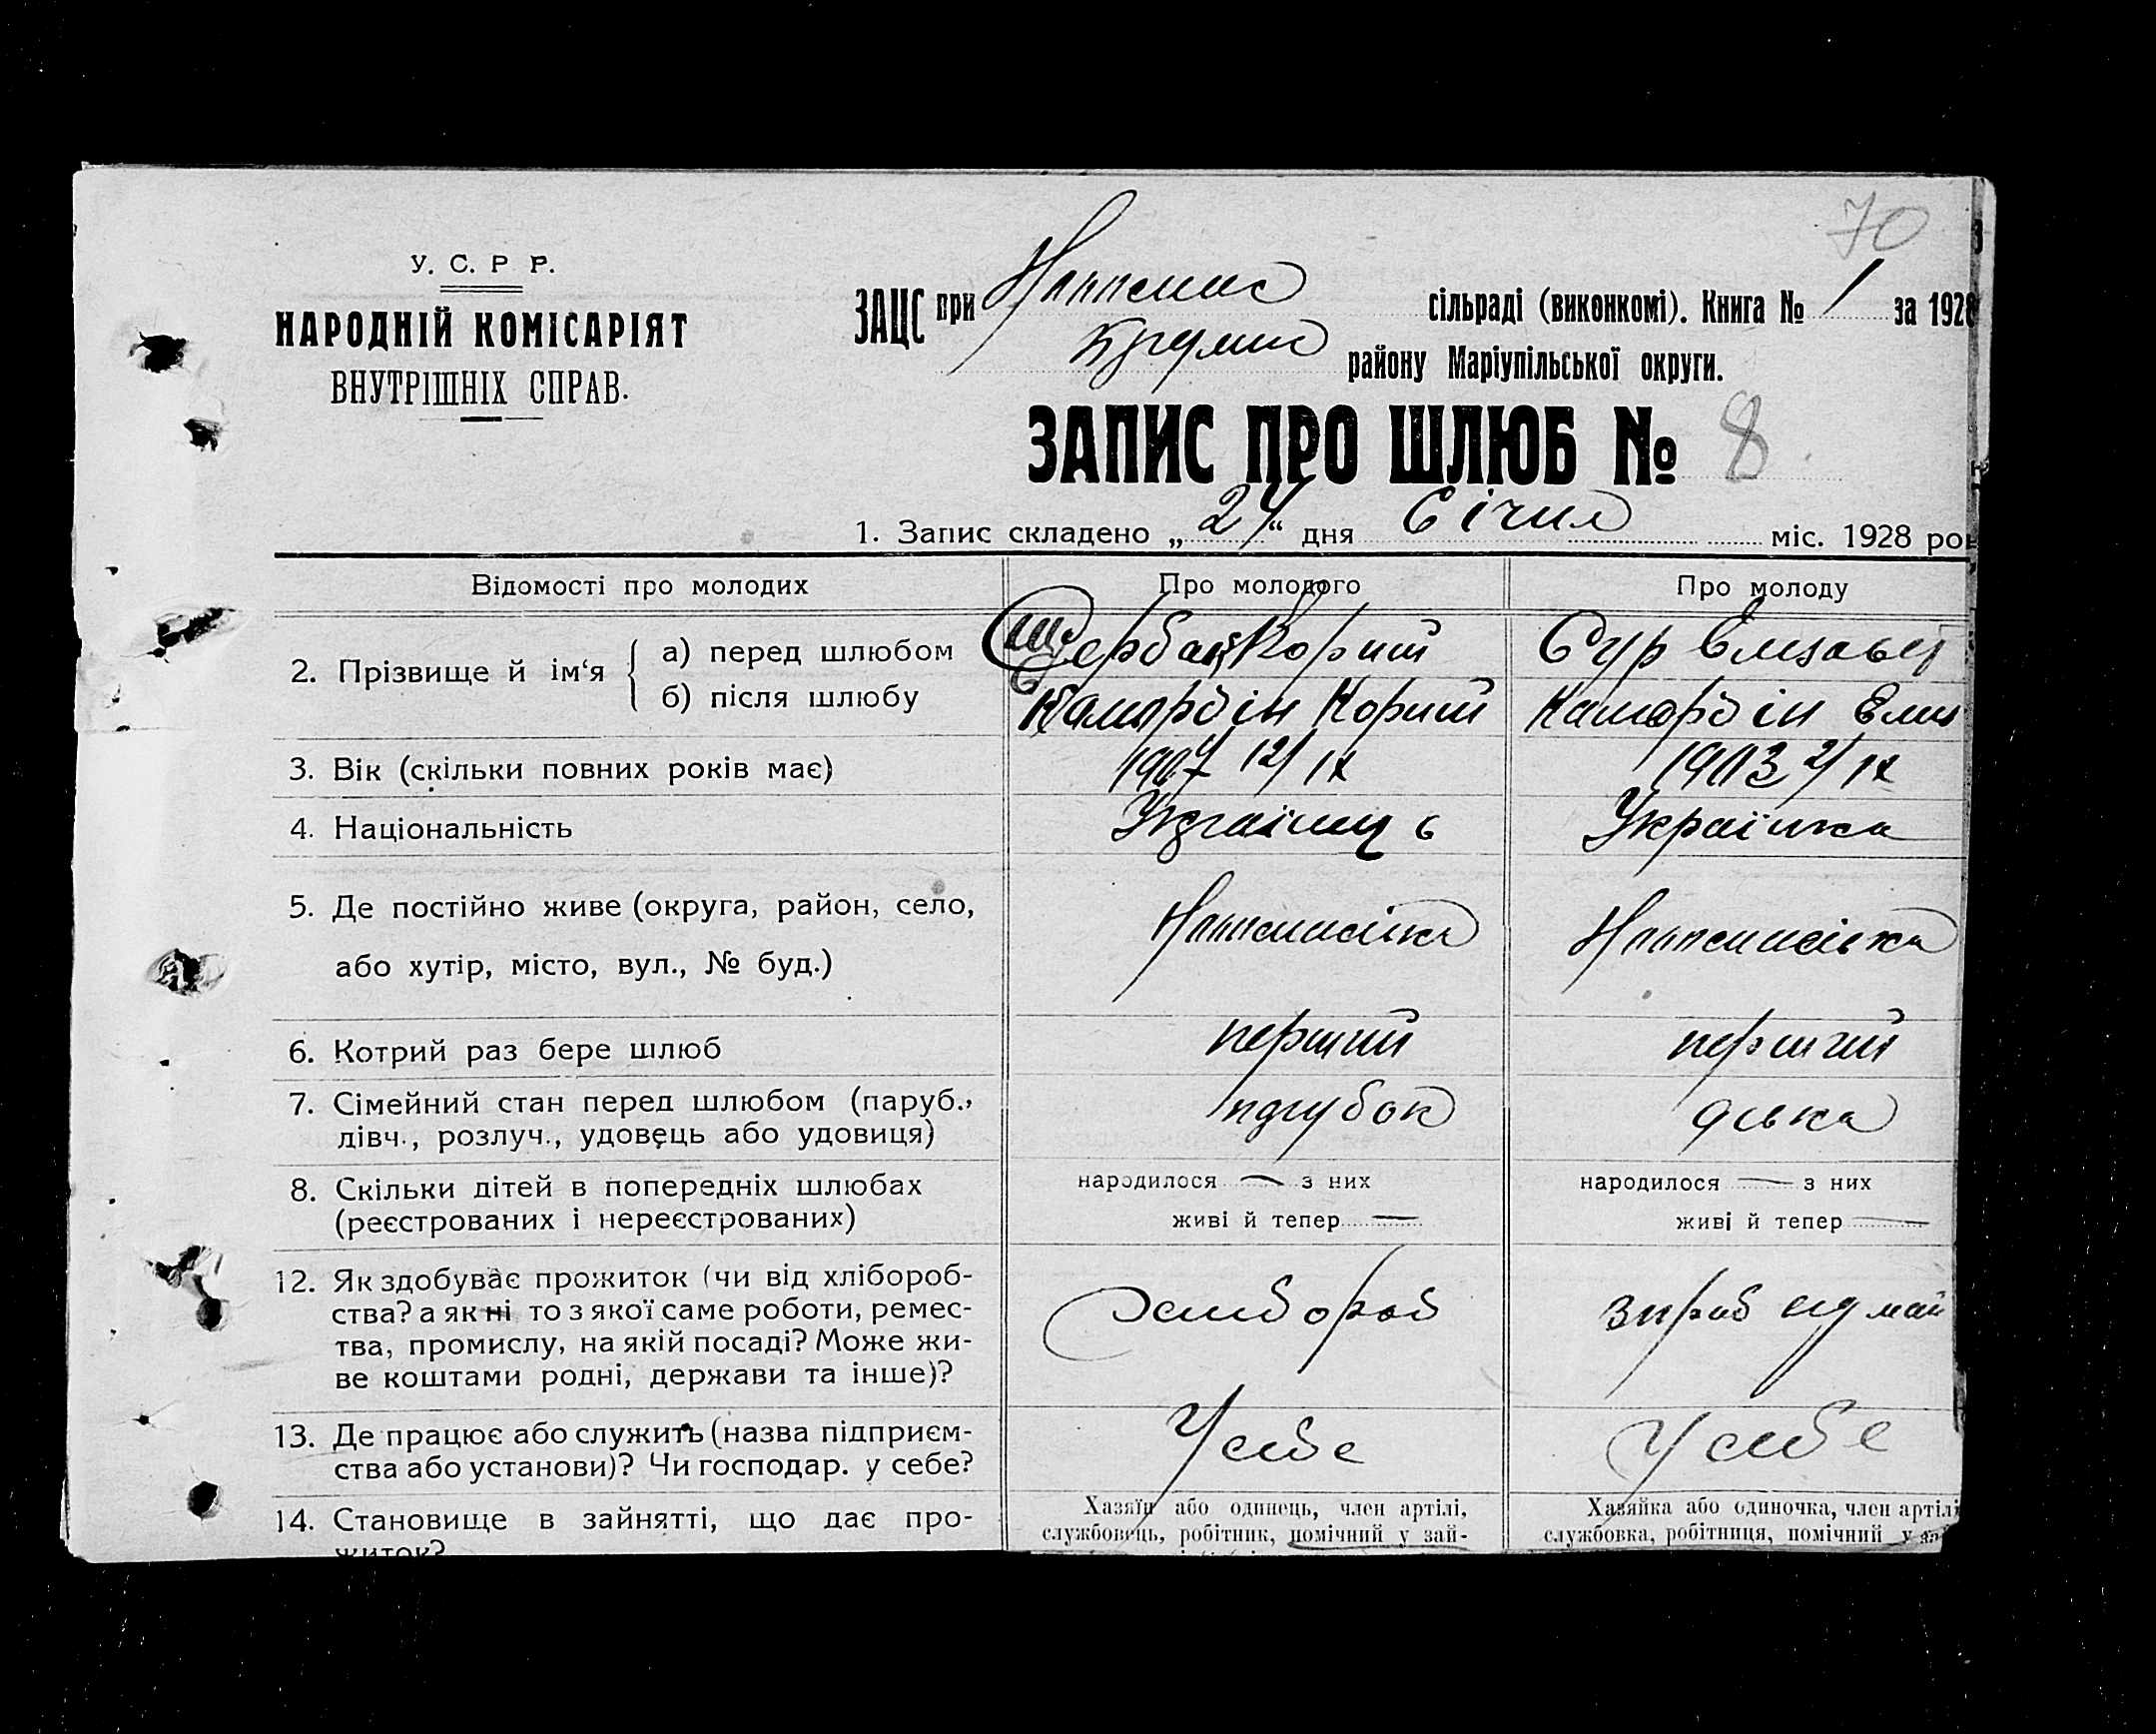 70
У. С. Р Р.
НАРОДНІЙ КОМІСАРІЯТ
ВНУТРІШНІХ СПРАВ.
ЗАЦС при сільраді (виконкомі). Книга № 1 за 1928
району Маріупільської округи.
ЗАПИС ПРО ШЛЮБ № 8
1. Запис складено „24“ дня Січня міс. 1928 ро
Відомості про молодих Про молодого Про молоду
2. Прізвище й ім‘я
а) перед шлюбом Щербак
б) після шлюбу
3. Вік (скільки повних років має) 1907 12/IX 1903 2/IX
4. Національність Українець Українка
5. Де постійно живе (округа, район, село,
або хутір, місто, вул., № буд.)
6. Котрий раз бере шлюб перший перший
7. Сімейний стан перед шлюбом (паруб.,
дівч., розлуч., удовець або удовиця) парубок дівка
8. Скільки дітей в попередніх шлюбах народилося — з них народилося — з них
(реєстрованих і нереєстрованих) живі й тепер — живі й тепер —
12. Як здобуває прожиток (чи від хлібороб-
ства? а як ні то з якої саме роботи, ремес-
тва, промислу, на якій посаді? Може жи-
ве коштами родні, держави та інше)? Хлібороб
13. Де працює або служить (назва підприєм-
ства або установи)? Чи господар. у себе? У себе У себе
14. Становище в зайнятті, що дає про-
житок?
Хазяїн або одинець, член артілі,
службовець, робітник, помічний у зай-
Хазяйка або одиночка, член артілі
службовка, робітниця, помічний у зай